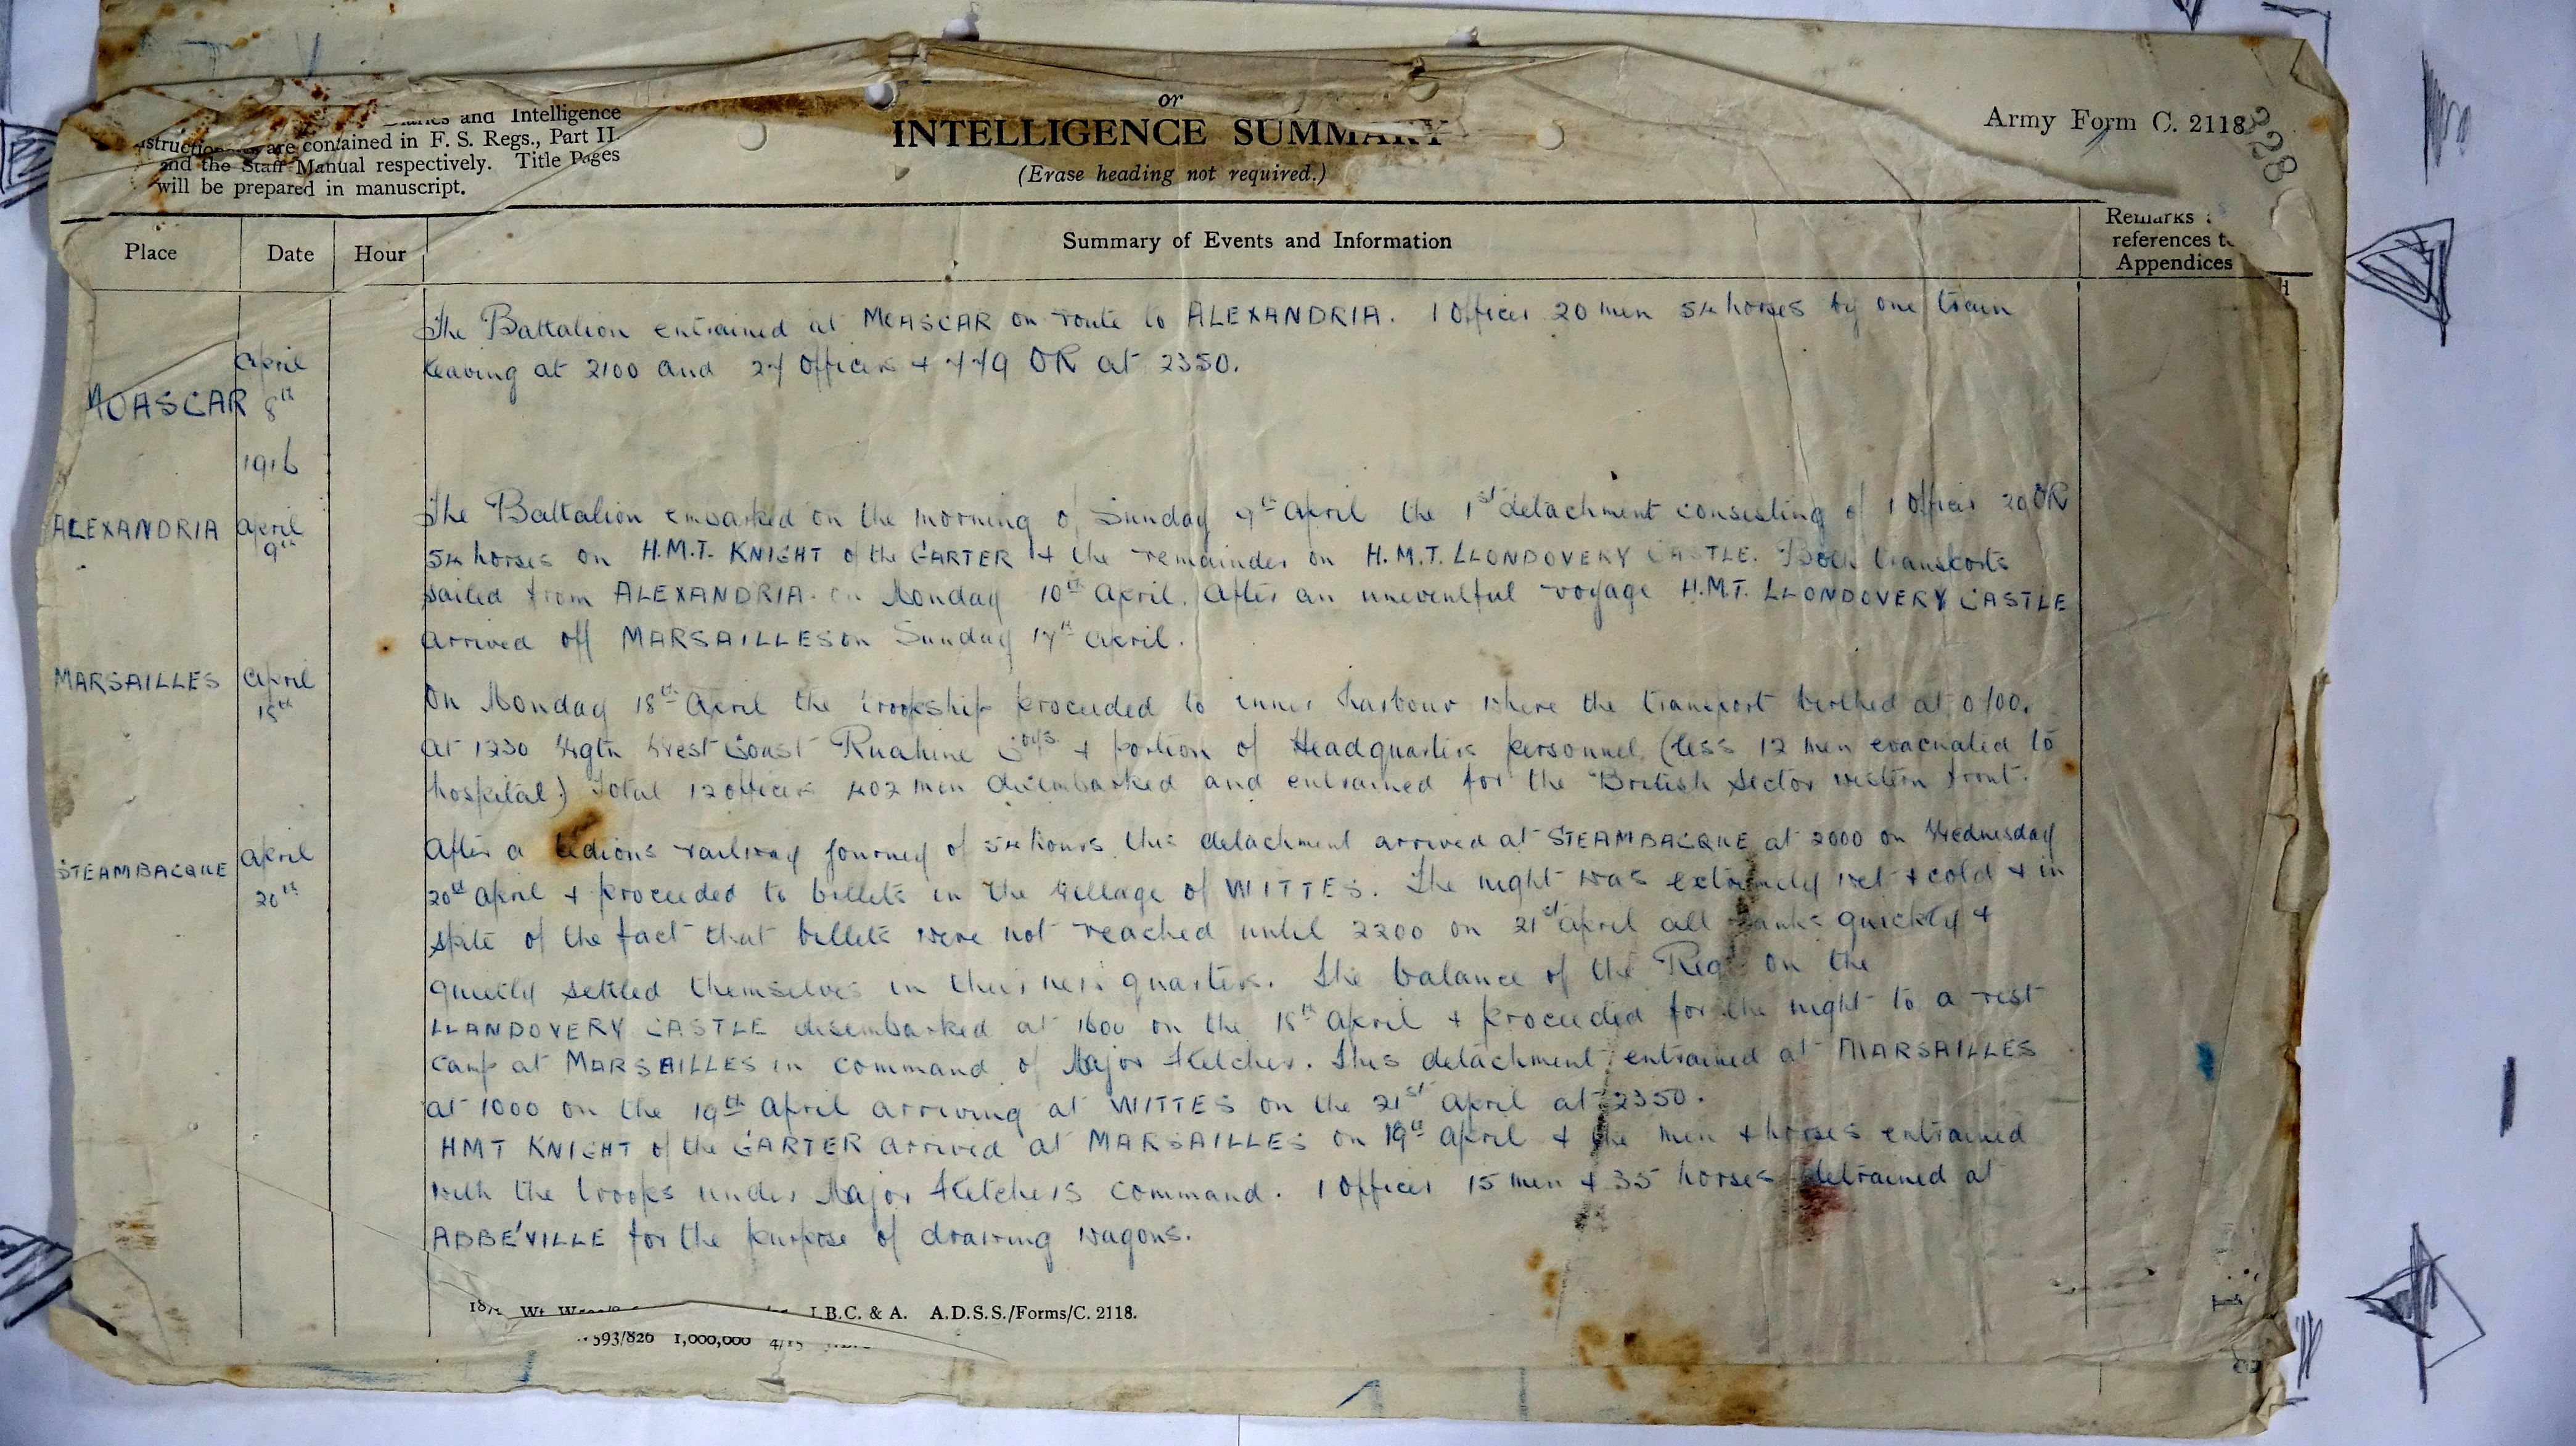 or
Army Form C. 2118
and Intelligence
are contained in F. S. Regs., Part II.
and the Staff Manual respectively. Title Pages
will be prepared in manuscript.
INTELLIGENCE SUMMARY
(Erase heading not required.)
328
Place
Date
Hour
Summary of Events and Information
Remarks
references to
Appendices
MOASCAR
April
8th
1916
The Battalion entrained at MOASCAR on route to ALEXANDRIA. 1 Officer 20 men 54 horses by one train
leaving at 2100 and 27 Officers + 779 OR at 2350.
ALEXANDRIA
April
9th
The Battalion embarked on the morning of Sunday 9th April the 1st detachment consisting of 1 Officer 20 OR
54 horses on H.M.T. KNIGHT of the GARTER + the remainder on H.M.T. LLONDOVERY CASTLE. Both transports
sailed from ALEXANDRIA on Monday 10th April. After an uneventful voyage H.M.T. LLONDOVERY CASTLE
arrived off MARSAILLES on Sunday 17th April.
MARSAILLES
April
18th
On Monday 18th April the troopship proceeded to inner harbour where the transport berthed at 0700.
at 1230 Wgtn West Coast Ruahine Coys + portion of Headquarters personnel (less 12 men evacuated to
hospital) Total 12 officers 402 men disembarked and entrained for the British Sector western front.
STEAMBACQUE
April
20th
After a tedious railway journey of 54 hours this detachment arrived at STEAMBACQUE at 2000 on Wednesday
20th April + proceeded to billets in the village of WITTES. The night was extremely wet + cold + in
spite of the fact that billets were not reached until 2200 on 21st April all ranks quickly +
quietly settled themselves in their new quarters. The balance of the Regt on the
LLANDOVERY CASTLE disembarked at 1600 on the 18th April + proceeded for the night to a rest
camp at MARSAILLES in command of Major Fletcher. This detachment entrained at MARSAILLES
at 1000 on the 19th April arriving at WITTES on the 21st April at 2350.
HMT KNIGHT of the GARTER arrived at MARSAILLES on 19th April + the men + horses entrained
with the troops under Major Fletchers command. 1 Officer 15 men + 35 horses detrained at
ABBÉVILLE for the purpose of drawing wagons.
I.B.C. & A. A.D.S.S./Forms/C. 2118.
593/826 1,000,000 4/15